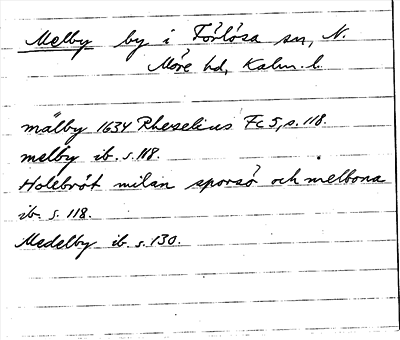 Melby by i Förlösa sn, N.
Möre hd, Kalm. l.
målby 1634 Rhezelius Fc 5, s. 118.
melby ib. s. 118.
Holebröt milan sporsö och melbona
ib. s. 118.
Medelby ib. s. 130.